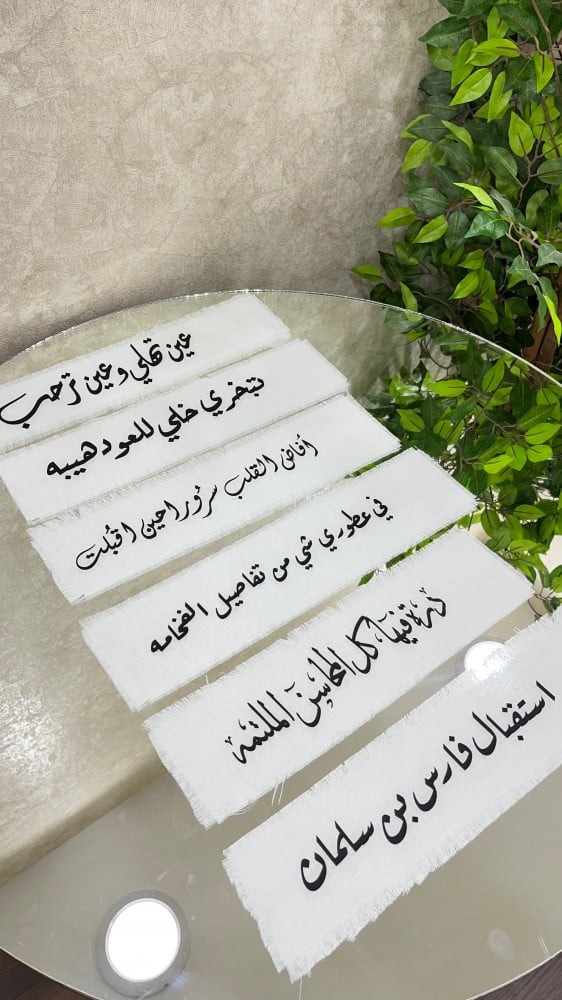 عين تهلي وعين ترحب
تبخري خلي للعود هيبه
أفاض القلب سرورا حين اقبلت
في عطوري شي من تفاصيل الفخامه
درة فيها كل المحاسن الملتمه
استقبال فارس بن سلمان